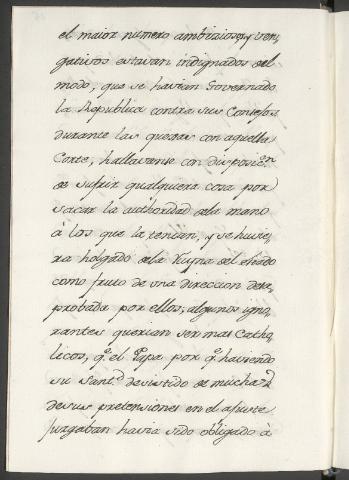 el maior numero ambiziosos, y ven
gativos estavan indignados del
modo, que se havian Governado
la Republica contra sus Consejos
durante las quexas con aquella
Corte, hallavanse con disposicⁿ
de sufrir qualquiera cosa por
sacar la authoridad dela mano
à los que la tenian, y se huvie
ra holgado dela Ruyna del estado
como fruto de una direccion dere
probada por ellos; algunos igno
rantes querian ser mas Catho
licos, q.e el Papa por q.e haviendo
su Sant.d desistido de mucha p.te
de sus pretensiones en el ajuste
juzgaban havia sido obligado à